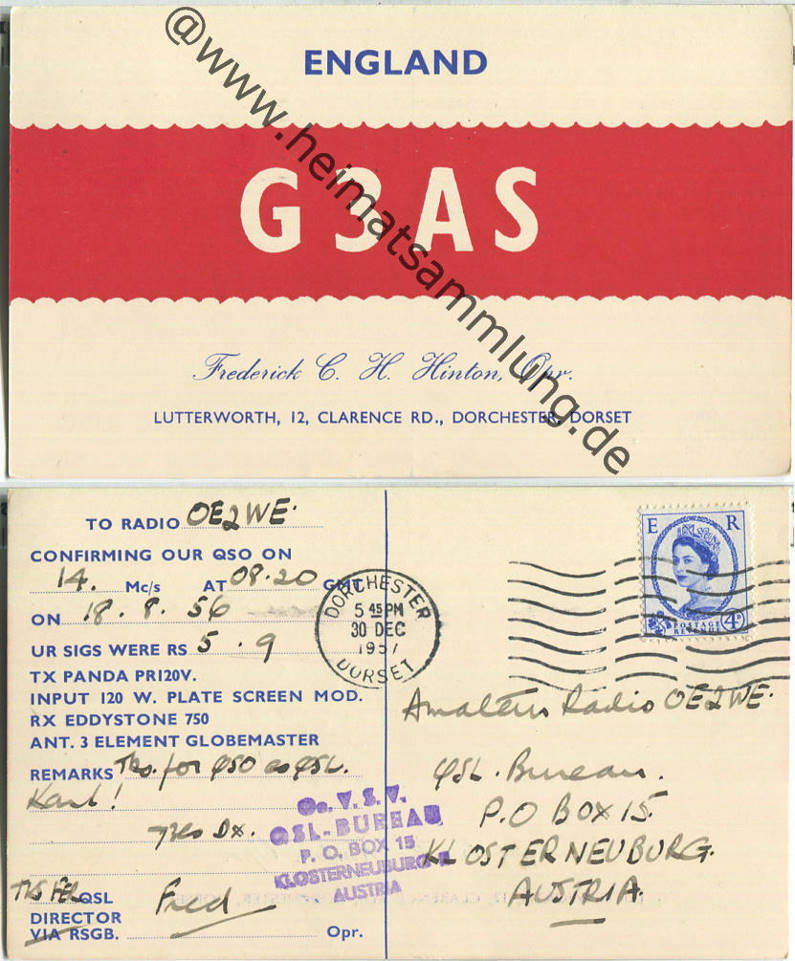 @www.heimatsammlung.de
ENGLAND
G3AS
Frederick C. H. Hinton, Opr.
LUTTERWORTH, 12, CLARENCE RD., DORCHESTER, DORSET
TO RADIO OE2WE.
CONFIRMING OUR QSO ON
14. Mc/s AT 08.20 GMT
ON 18.8.56
UR SIGS WERE RS 5.9
TX PANDA PR120V.
INPUT 120 W. PLATE SCREEN MOD.
RX EDDYSTONE 750
ANT. 3 ELEMENT GLOBEMASTER
REMARKS Tks. for QSO es QSL.
Karl!
73es Dx.
TKS FER QSL
DIRECTOR Fred
VIA RSGB. Opr.
DORCHESTER
5 45 PM
30 DEC
1957
DORSET
E R
POSTAGE
REVENUE
4D
Amateur Radio OE2WE.
QSL. Bureau.
P.O BOX 15.
KLOSTERNEUBURG.
AUSTRIA.
Oe. V. S. V.
QSL-BUREAU
P. O. BOX 15
KLOSTERNEUBURG
AUSTRIA